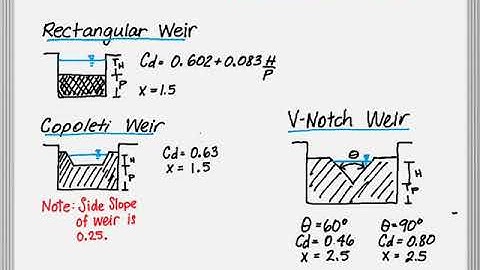 Rectangular Weir
H
P
Cd = 0.602 + 0.083 H/P
x = 1.5
Copoleti Weir
H
P
Cd = 0.63
x = 1.5
Note: Side Slope
of weir is
0.25.
V-Notch Weir
θ
H
P
θ = 60°
Cd = 0.46
x = 2.5
θ = 90°
Cd = 0.80
x = 2.5